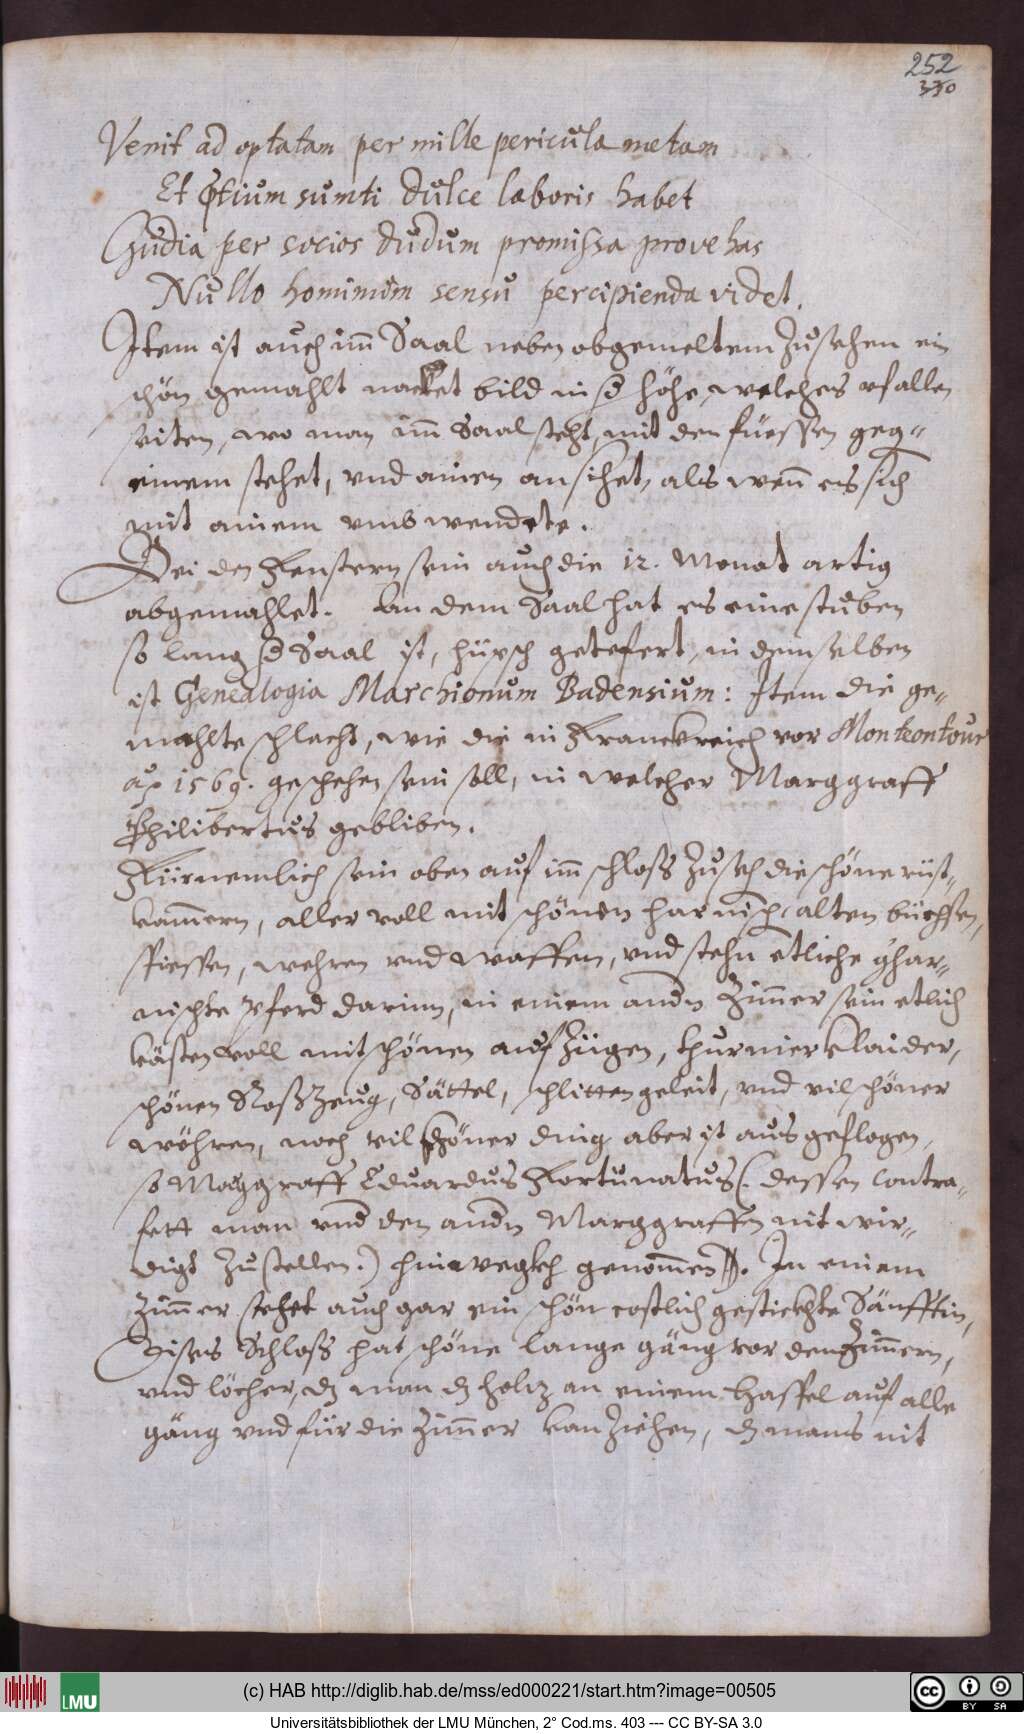 252
330
Venit ad optatam per mille pericula metam
Et Otium sumti dulce laboris habet
Gudia per socios dudum promissa provehas
Nullo hominum sensu percipienda videt.
Item ist auch im̄ Saal neben obgemeltem Zusehen ein
schön gemahlt nacket bild in d' höhe, welches vf allen
seiten, wo man im̄ Saal steht, mit den füessen geg=
einem stehet, vnd ainen ansihet, als wen̄ es sich
mit ainem vmbwendete.
Bei den Fenstern sein auch die 12. Monat artig
abgemahlet. An dem Saal hat es eine stuben
so lang d' Saal ist, hüpsch getefert, in demselben
ist Genealogia Marchionum Badensium: Item die ge=
mahlte schlacht, wie die in Franckreich vor Montcontour
aō 1569. geschehen sein soll, in welcher Marggraff
Philibertus gebliben.
Fürnemlich sein oben auf im̄ schloß Zuseh die schöne rüst=
kam̄ern, aller voll mit schönen harnisch, alten büchsen,
spiessen, wehren vnd waffen, vnd stehn etliche g'har=
nischte pferd darinn, in einem andn Zim̄er sein etlich
kästen voll mit schönen aufzügen, thurnier klaider,
schönen Roßzeug, Sättel, schlittengeleit, vnd vil schöner
wöhren, noch vil schöner ding aber ist ausgeflogen,
so Marggraff Eduardus Fortunatus (. dessen contra=
fett man vnd den andn Marggraffen nit wir=
digt Zustellen.) hinwegkh genom̄en. In einem
Zim̄er stehet auch gar ein schön costlich gestickhte Sänfftin,
Dises Schloß hat schöne lange gäng vor den Zim̄ern,
vnd löcher, dz man dz holtz an einem Haspel auf alle
gäng vnd für die Zim̄er kan Ziehen, dz mans nit
(c) HAB http://diglib.hab.de/mss/ed000221/start.htm?image=00505
LMU
Universitätsbibliothek der LMU München, 2° Cod.ms. 403 --- CC BY-SA 3.0
cc BY SA